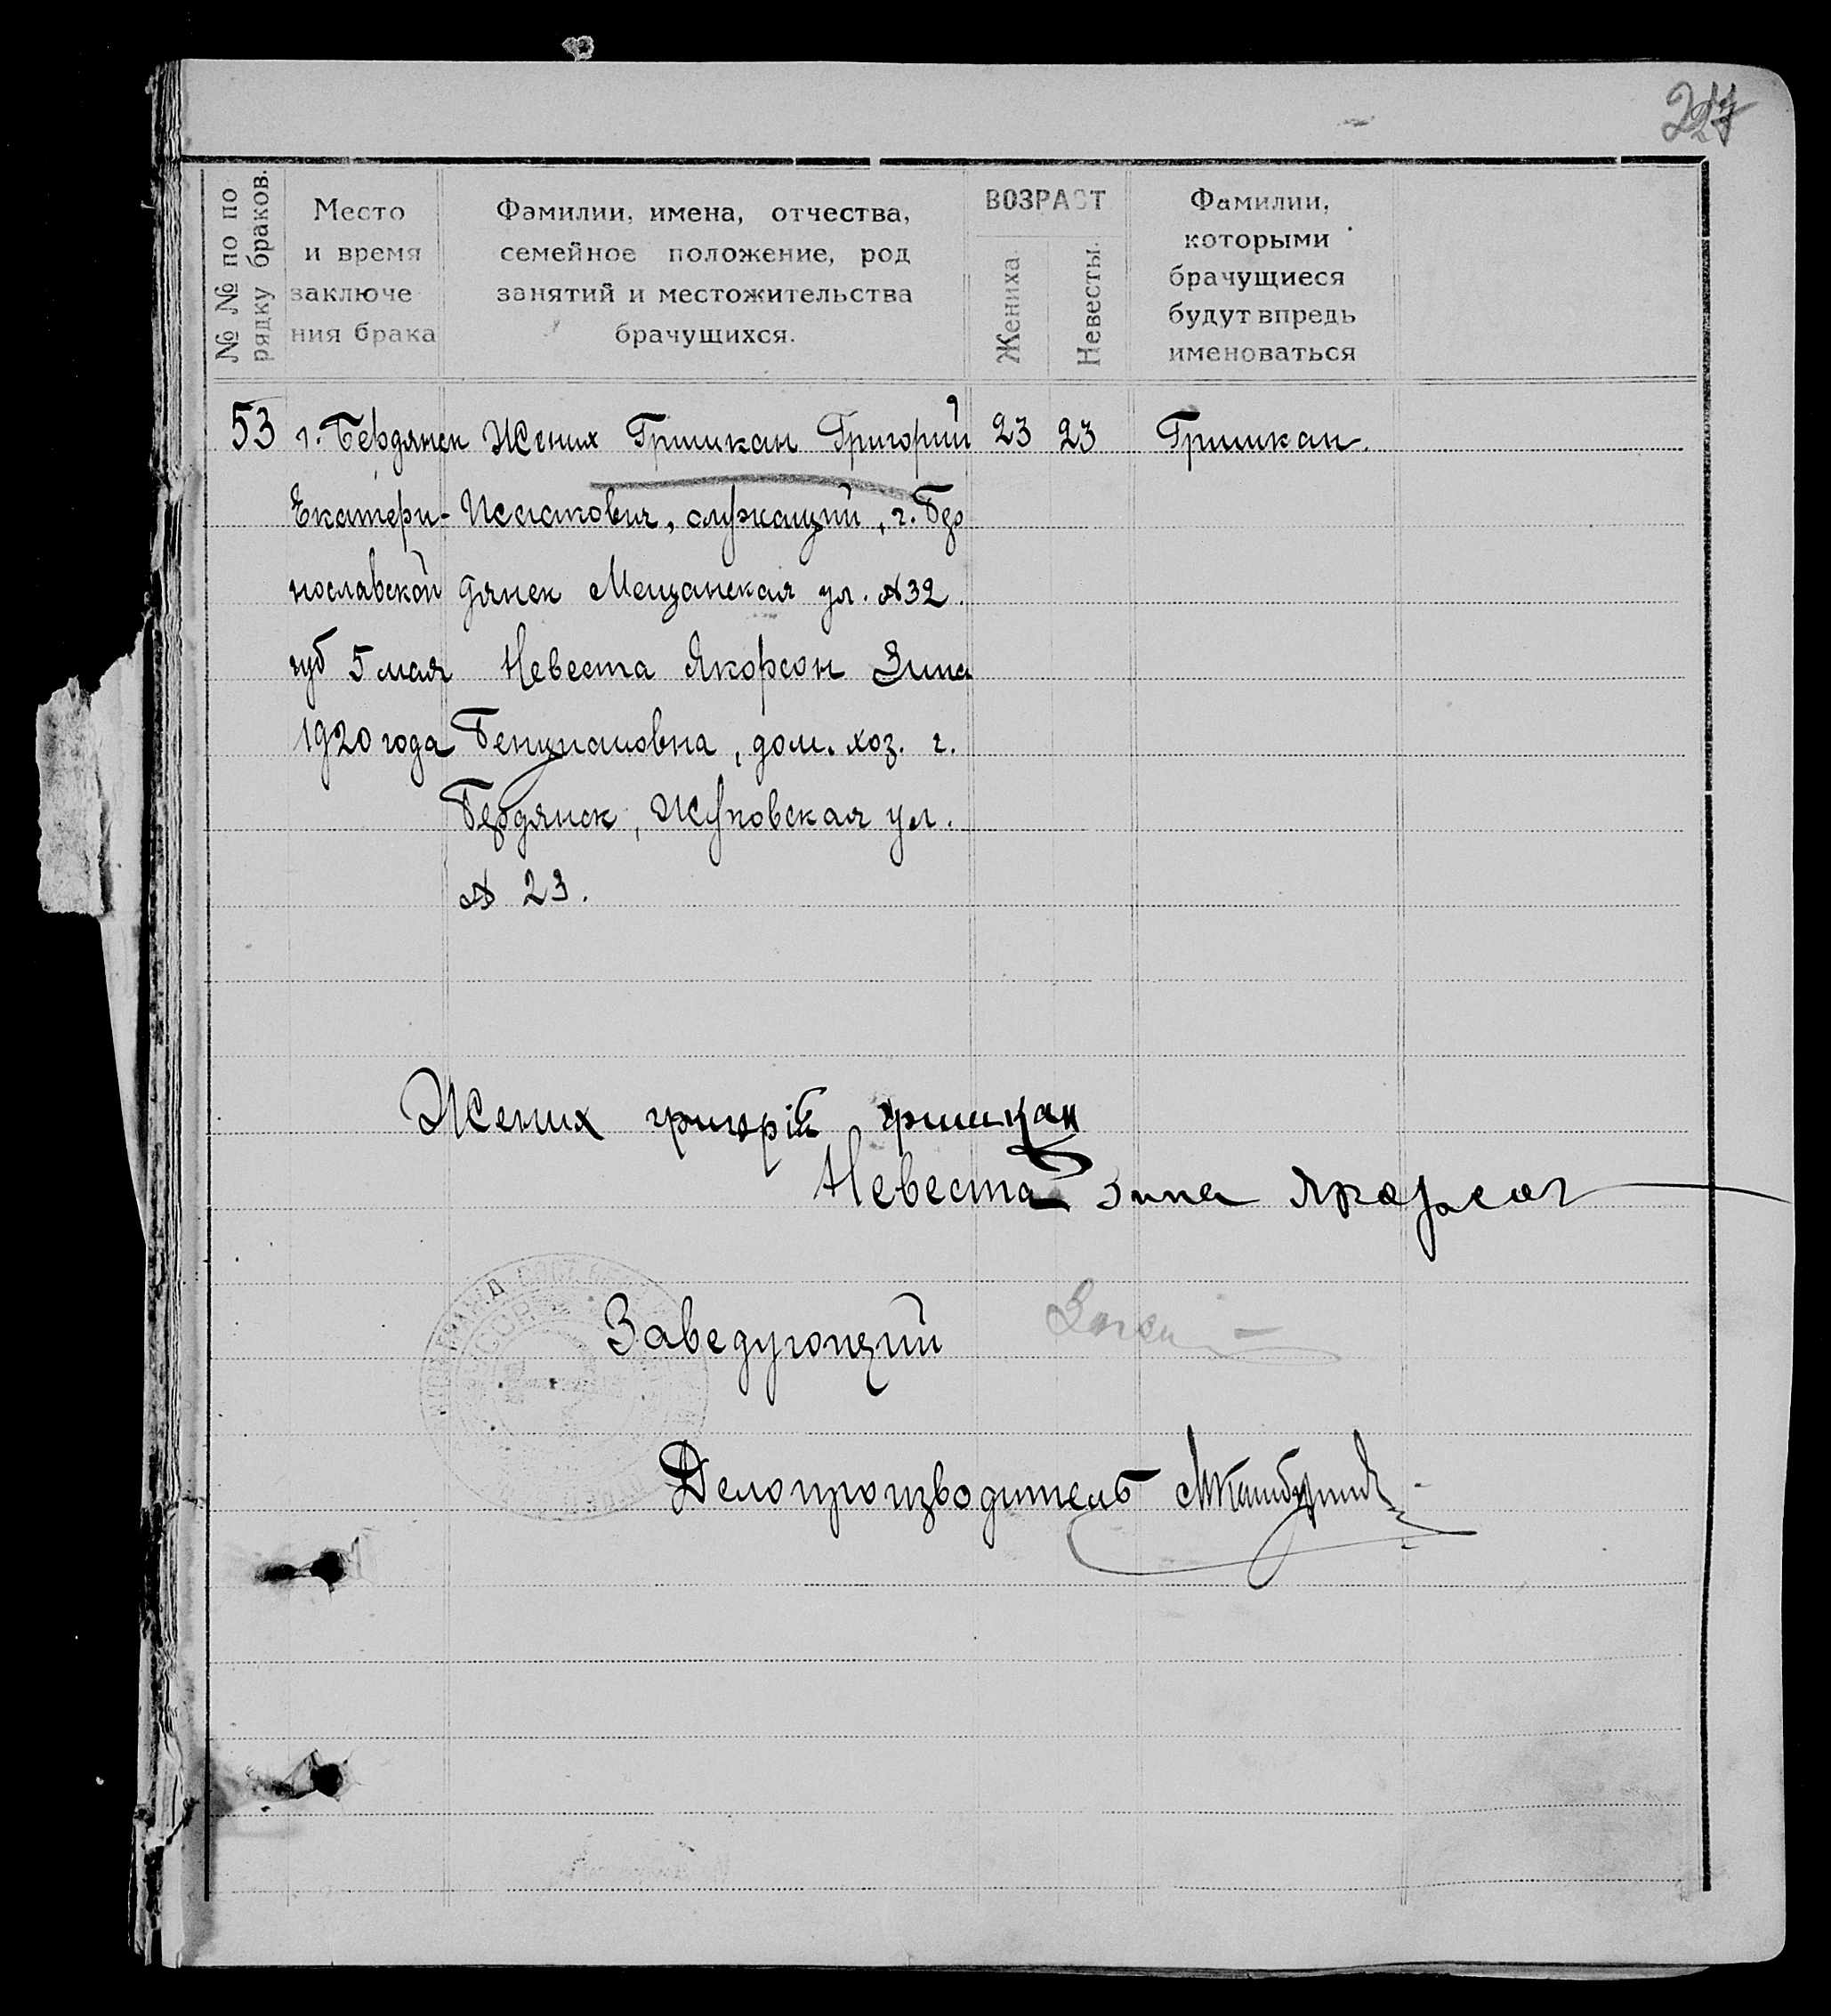 № № по по
рядку браков.
Место
и время
заключе
ния брака
Фамилии, имена, отчества,
семейное положение, род
занятий и местожительства
брачущихся.
ВОЗРАСТ
Жениха
Невесты.
Фамилии,
которыми
брачущиеся
будут впредь
именоваться
53
г. Бердянск
Екатери-
нославской
губ 5 мая
1920 года
Жених Гришкан Григорий
Исаакович, служащий, г. Бер
дянск Мещанская ул. № 32.
Невеста Якорсон Зина
Бенционовна, дом. хоз. г.
Бердянск, Жуковская ул.
№ 23.
23
23
Гришкан.
Жених григорій гришкан
Невеста Зина Якорсон
Заведующий
Делопроизводитель